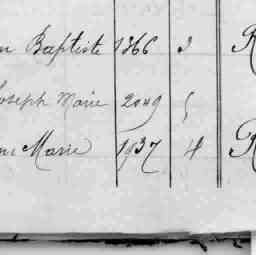 Baptiste 1866 3 R
Joseph Marie 2049 5
Marie 1937 4 R